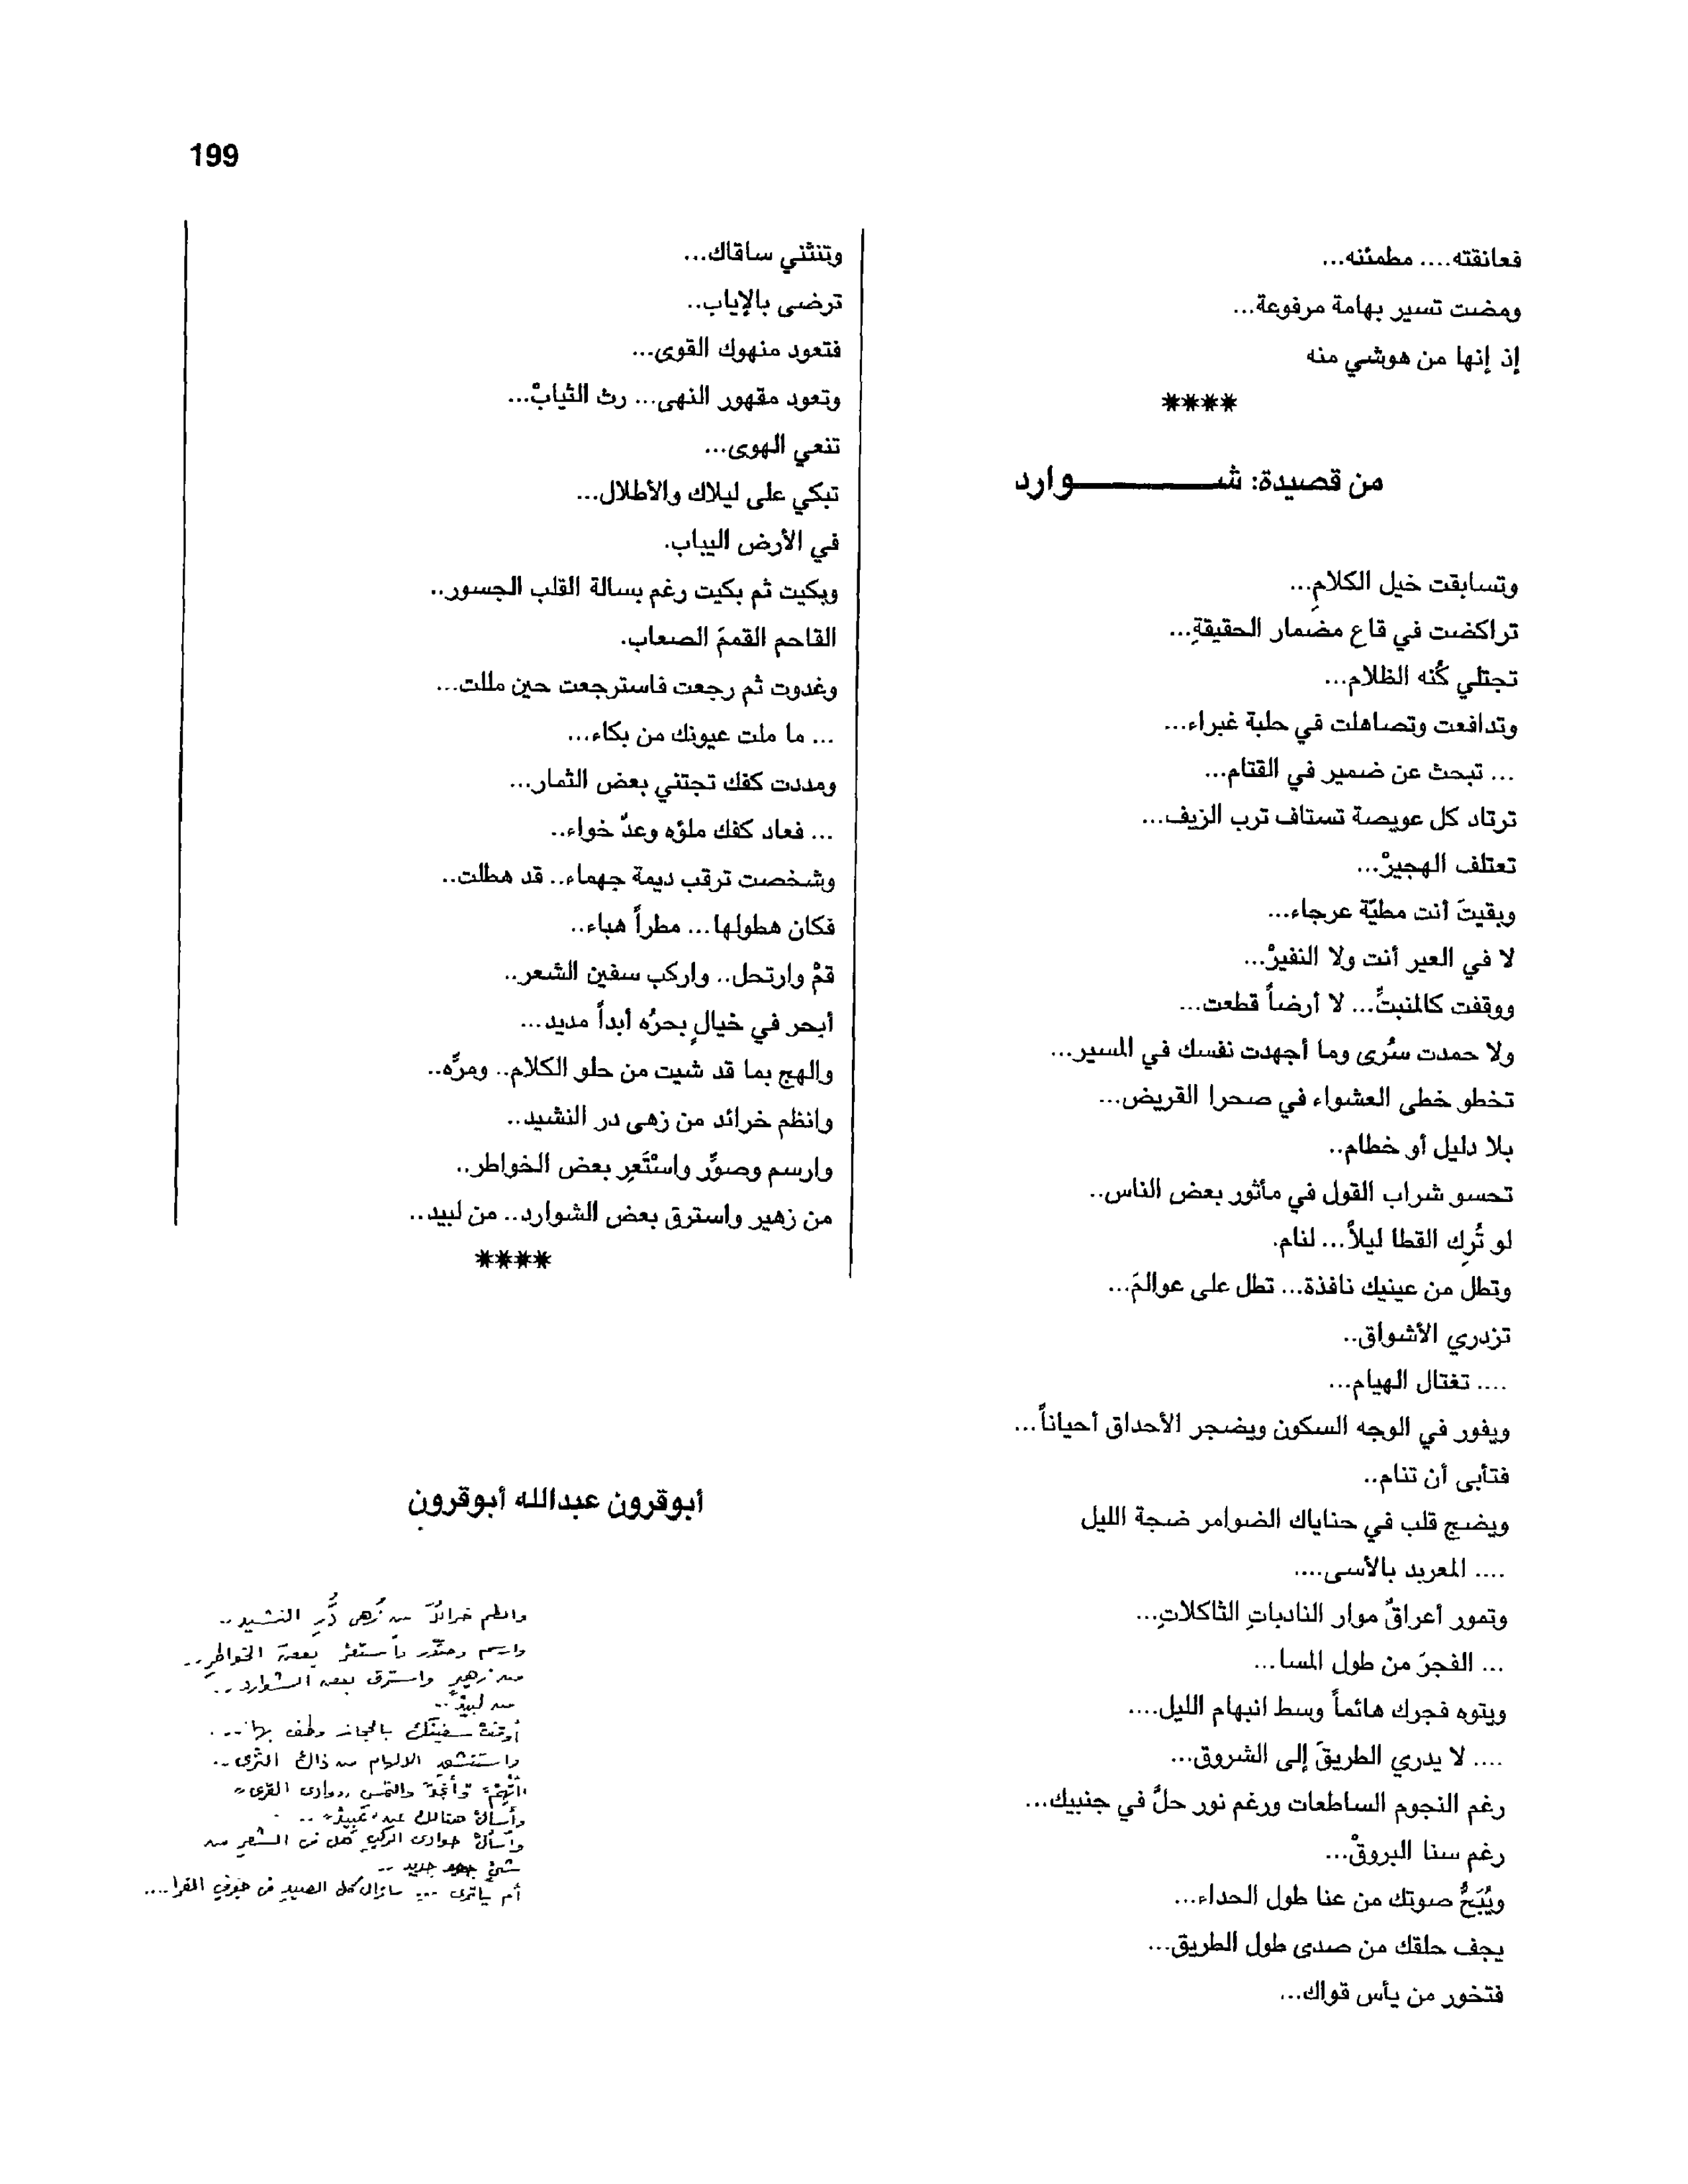 199
فعانقته.... مطمئنه...
ومضت تسير بهامة مرفوعة...
إذ إنها من هوشي منه
****
من قصيدة: شـــــــــوارد
وتسابقت خيل الكلامِ...
تراكضت في قاع مضمار الحقيقةِ...
تجتلي كُنه الظلام...
وتدافعت وتصاهلت في حلبة غبراء...
... تبحث عن ضمير في القتام...
ترتاد كل عويصة تستاف ترب الزيف...
تعتلف الهجيرْ...
وبقيتَ أنت مطيّة عرجاء...
لا في العير أنت ولا النفيرْ...
ووقفت كالمنبتِّ... لا أرضاً قطعت...
ولا حمدت سُرى وما أجهدت نفسك في المسير...
تخطو خطى العشواء في صحرا القريض...
بلا دليل أو خطام..
تحسو شراب القول في مأثور بعض الناس..
لو تُرِك القطا ليلاً... لنام.
وتطل من عينيك نافذة... تطل على عوالمَ...
تزدري الأشواق..
.... تغتال الهيام...
ويفور في الوجه السكون ويضجر الأحداق أحياناً...
فتأبى أن تنام..
ويضج قلب في حناياك الضوامر ضجة الليل
.... المعربد بالأسى....
وتمور أعراقٌ موار النادباتِ الثاكلاتِ...
... الفجرَ من طول المسا...
ويتوه فجرك هائماً وسط انبهام الليل....
.... لا يدري الطريقَ إلى الشروق...
رغم النجوم الساطعات ورغم نور حلَّ في جنبيك...
رغم سنا البروقْ...
ويُبَحُّ صوتك من عنا طول الحداء...
يجف حلقك من صدى طول الطريق...
فتخور من يأس قواك...
وتنثني ساقاك...
ترضى بالإياب..
فتعود منهوك القوى...
وتعود مقهور النهى... رث الثيابْ...
تنعي الهوى...
تبكي على ليلاك والأطلال...
في الأرض اليباب.
وبكيت ثم بكيت رغم بسالة القلب الجسور..
القاحم القممَ الصعاب.
وغدوت ثم رجعت فاسترجعت حين مللت...
... ما ملت عيونك من بكاء...
ومددت كفك تجتني بعض الثمار...
... فعاد كفك ملؤه وعدٌ خواء..
وشخصت ترقب ديمة جهماء.. قد هطلت..
فكان هطولها... مطراً هباء..
قمْ وارتحل.. واركب سفين الشعر..
أبحر في خيالٍ بحرُه أبداً مديد...
والهج بما قد شيت من حلو الكلام.. ومرَّه..
وانظم خرائد من زهى در النشيد..
وارسم وصوِّر واسْتَعِر بعض الخواطر..
من زهير واسترق بعض الشوارد.. من لبيد..
****
أبوقرون عبدالله أبوقرون
وانظم خرائدَ من زُهى دُرِّ النشيد..
وارسم وصوّر واستعرْ بعضَ الخواطرِ..
من زهيرٍ واسترق بعض الشوارد..
من لبيدْ..
أوقفْ سفينَك بالحجاز وطف بها...
واستشعر الالهام من ذاك الثرى..
أَتْهِمْ وأنجدْ والتمس وادى القرى
وأسألْ هنالك عن عَبيدْ..
وأسألْ حوادى الركب هل فى الشعر من
شئ جديد..
أم ياترى ... مازال كل الصيد فى جوف الفرا....